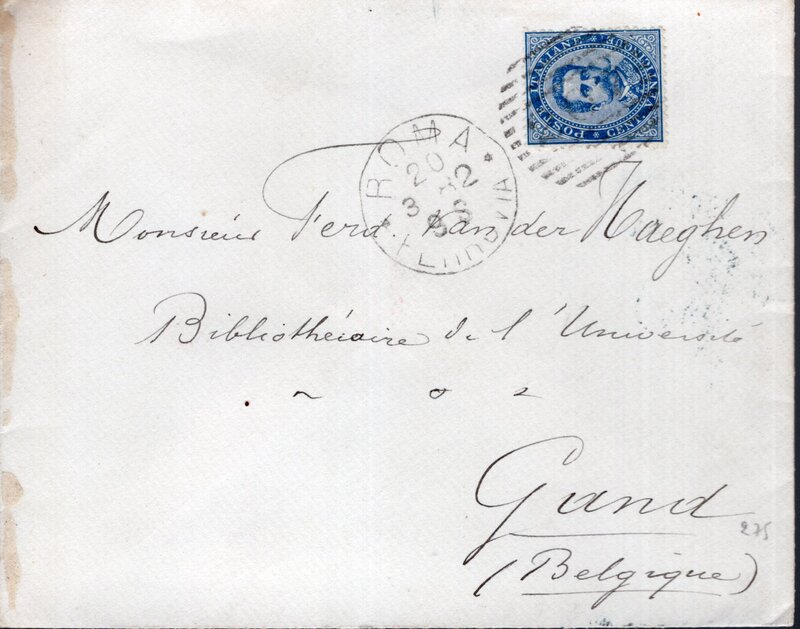 POSTE ITALIANE * CENT. VENTICINQUE *
ROMA *
20
3
Monsieur Ferd. Van der Haeghen
Bibliothécaire de l'Université
Gand
275
(Belgique)